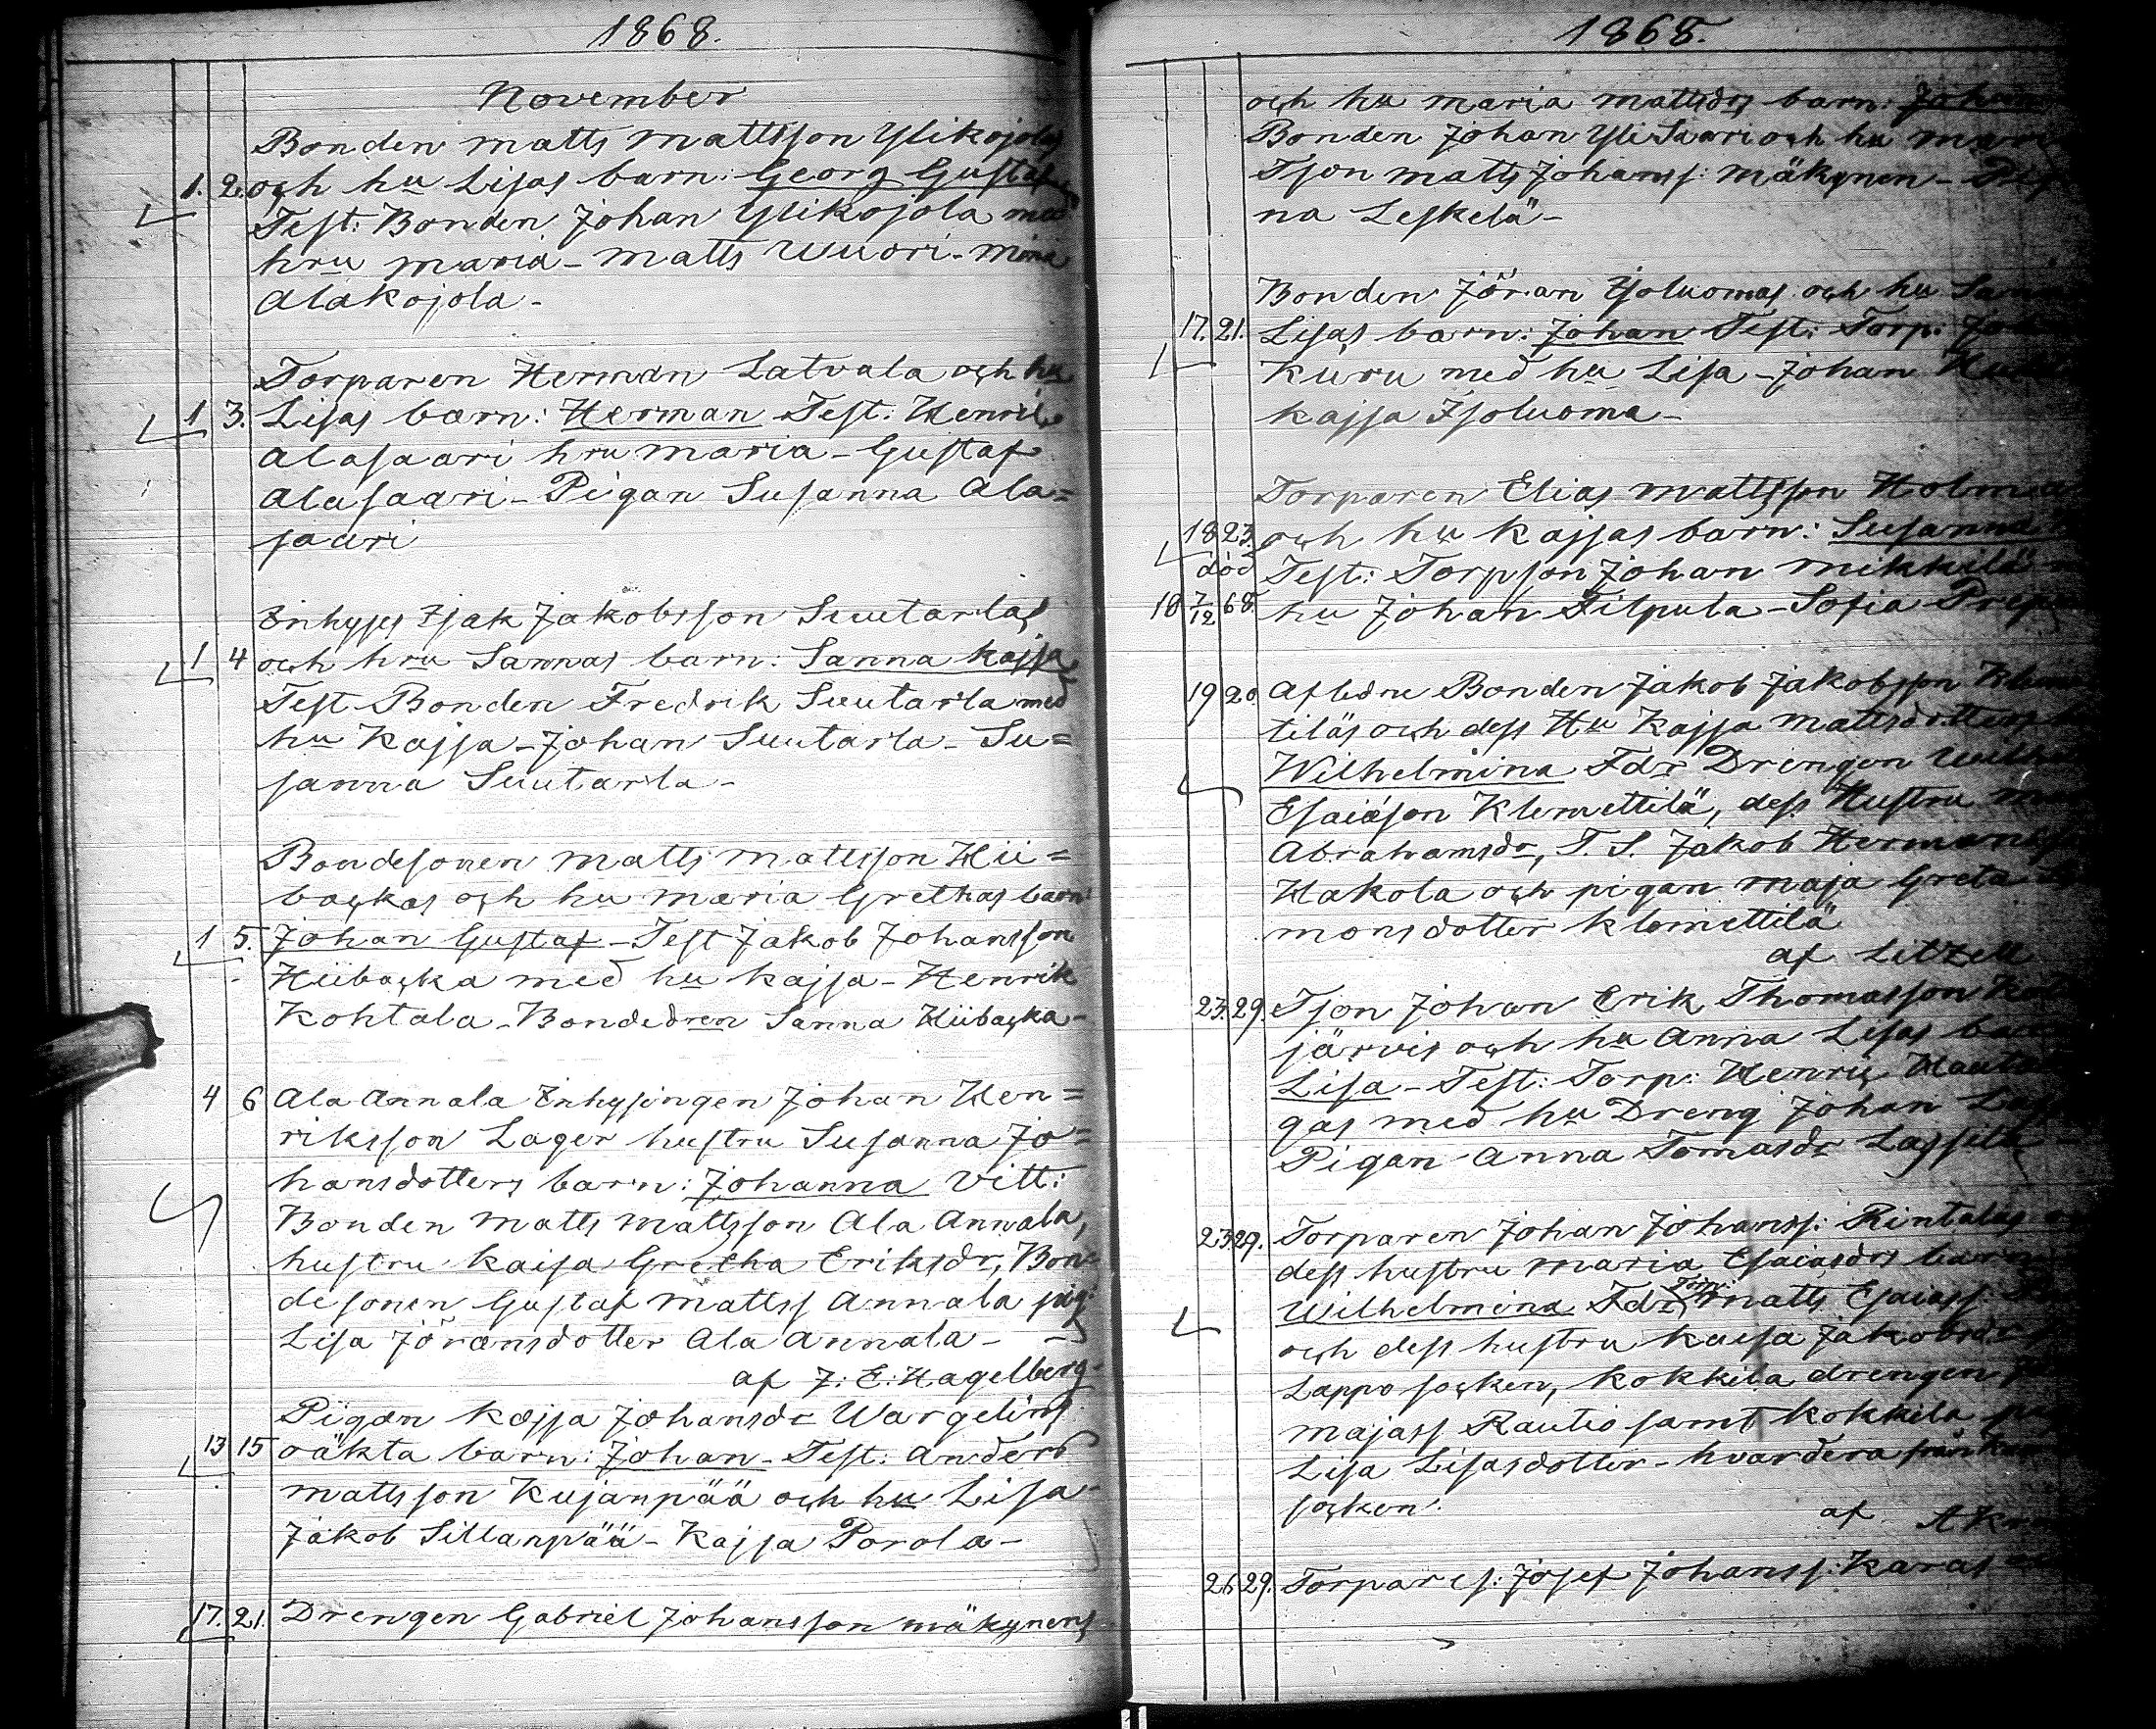 1868.
November
Bonden Matts Mattsson Ylikojolas
1. 2. och hu Lisas barn: Georg Gustaf
Test: Bonden Johan Ylikojola med
hru Maria - Matts Wuori - Mina
Alakojola -
Torparen Herman Latvala och hu
1 3. Lisas barn: Herman Test: Henrik
Alasaari hru Maria - Gustaf
Alasaari - Pigan Susanna Ala=
saari
Inhyses Isak Jakobsson Suutarlas
1 4 och hru Sannas barn: Sanna Kajsa
Test Bonden Fredrik Suutarla med
hu Kajsa - Johan Suutarla - Su=
sanna Suutarla -
Bondesonen Matts Mattsson Hii=
backas och hu Maria Grethas barn:
1 5. Johan Gustaf - Test Jakob Johansson
Hiibacka med hu Kajsa - Henrik
Kohtala - Bondedren Sanna Hiibacka -
4 6 Ala Annala Inhysingen Johan Hen=
riksson Lager hustru Susanna Jo=
hansdotters barn: Johanna Vitt:
Bonden Matts Mattsson Ala Annala,
hustru Kaisa Gretha Eriksdr, Bon=
desonen Gustaf Mattss Annala pig:
Lisa Jöransdotter Ala Annala -
af J: E: Hagelberg -
Pigan Kajsa Johansdr Wargelins
13 15 oäkta barn: Johan - Test: Anders
Mattsson Kujanpää och hu Lisa -
Jakob Sillanpää - Kajsa Porola -
17. 21. Drengen Gabriel Johansson Mäkynens
1868.
och hu Maria Mattsdrs barn:
Bonden Johan Yli Saari och hu
Tson Matts Johanss: Mäkynen -
na Leskelä -
Bonden Jöran Isoluomas och hu
17. 21. Lisas barn: Johan Test: Torp:
Kuru med hu Lisa - Johan
Kajsa Isoluoma -
Torparen Elias Mattsson
18 23. och hu Kajsas barn: Susanna
död Test: Torpson Johan Mikkilä
18 7/12 68. hu Johan Filpula - Sofia
19 20 Afledne Bonden Jakob Jakobsson
tiläs och dess Hu Kajsa Mattsdotters
Wilhelmina Fdr Drengen
Esaiäson Klemettilä, dess Hustru
Abrahamsdr, T. S. Jakob
Hakola och pigan Maja Greta
monsdotter Klemettilä
af Litzell
23. 29. Tson Johan Erik Thomasson
järvis och hu Anna Lisas
Lisa - Test: Torp: Henric
gas med hu Dreng Johan
Pigan Anna Tomasdr Lassila
23 29. Torparen Johan Johanss: Rintalas
dess hustru Maria Esaiasdrs barn
Wilhelmina Fdr Torp: Matts Esaiass:
och dess hustru Kaisa Jakobsdr
Lappo socken, Kokkila drengen
Majass Rautio samt Kokkila
Lisa Lisasdotter - hvardera från
socken.
af
26 29. Torpares: Josef Johanss: Karas